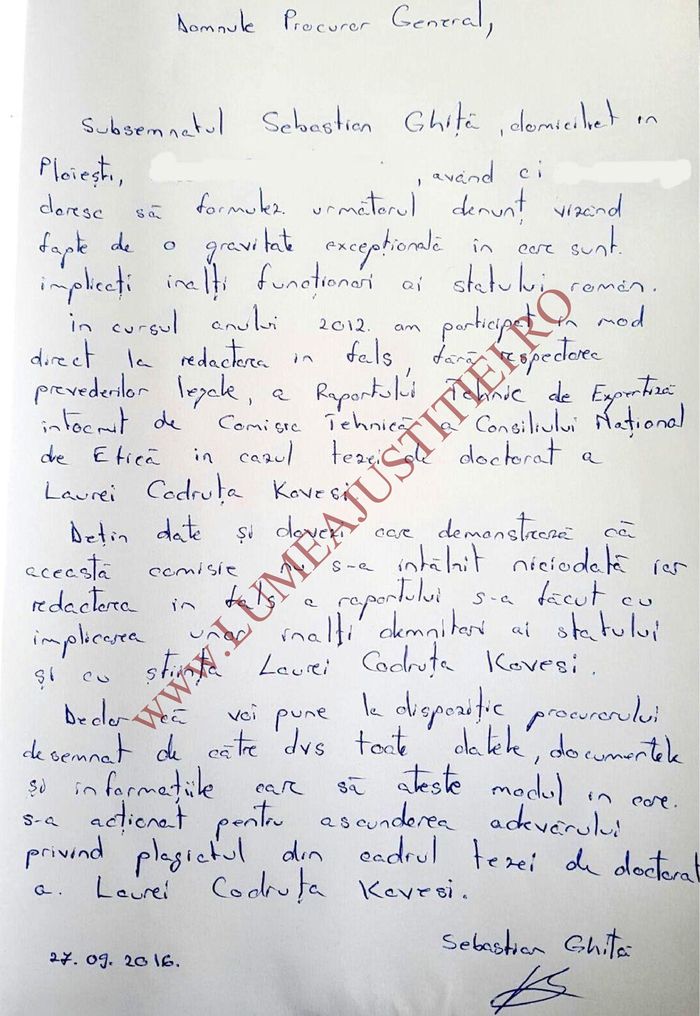 Domnule Procuror General,
Subsemnatul Sebastian Ghiță, domiciliat în
Ploiești, , având ci
doresc să formulez următorul denunț vizând
fapte de o gravitate excepțională în care sunt
implicați înalți funcționari ai statului român.
În cursul anului 2012. am participat în mod
direct la redactarea în fals, fără respectarea
prevederilor legale, a Raportului Tehnic de Expertiză
întocmit de Comisia Tehnică a Consiliului Național
de Etică în cazul tezei de doctorat a
Laurei Codruța Kovesi
Dețin date și dovezi care demonstrează că
această comisie nu s-a întâlnit niciodată iar
redactarea în fals a raportului s-a făcut cu
implicarea unor înalți demnitari ai statului
și cu știința Laurei Codruța Kovesi.
Declar că voi pune la dispoziție procurorului
desemnat de către dvs toate datele, documentele
și informațiile care să ateste modul în care.
s-a acționat pentru ascunderea adevărului
privind plagiatul din cadrul tezei de doctorat
a. Laurei Codruța Kovesi.
Sebastian Ghiță
27.09.2016.
www.LUMEAJUSTITIEI.RO